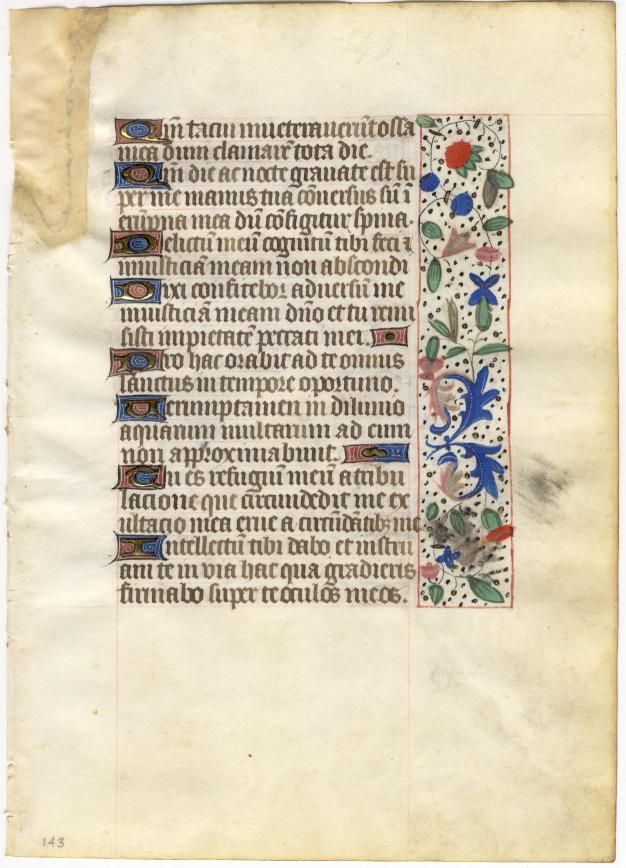 Qm̄ tacui inueterauerūt ossa
mea dum clamarē tota die.
Qm̄ die ac nocte grauata est su
per me manus tua cōuersus sū ī
erūpna mea dū cōfigitur spina.
Delictū meū cognitū tibi feci ⁊
iniusticiā meam non abscondi
Dixi confitebor aduersū me
iniusticiā meam dn̄o et tu remi
sisti impietatē peccati mei.
Pro hac orabit ad te omnis
sanctus in tempore oportuno.
Uerumptamen in diluuio
aquarum multarum ad eum
non approximabunt.
Tu es refugiū meū a tribu
lacione que circūdedit me ex
ultacio mea erue a circūdātibꝫ me
Intellectū tibi dabo et instru
am te in via hac qua gradieris
firmabo super te oculōs meos.
143